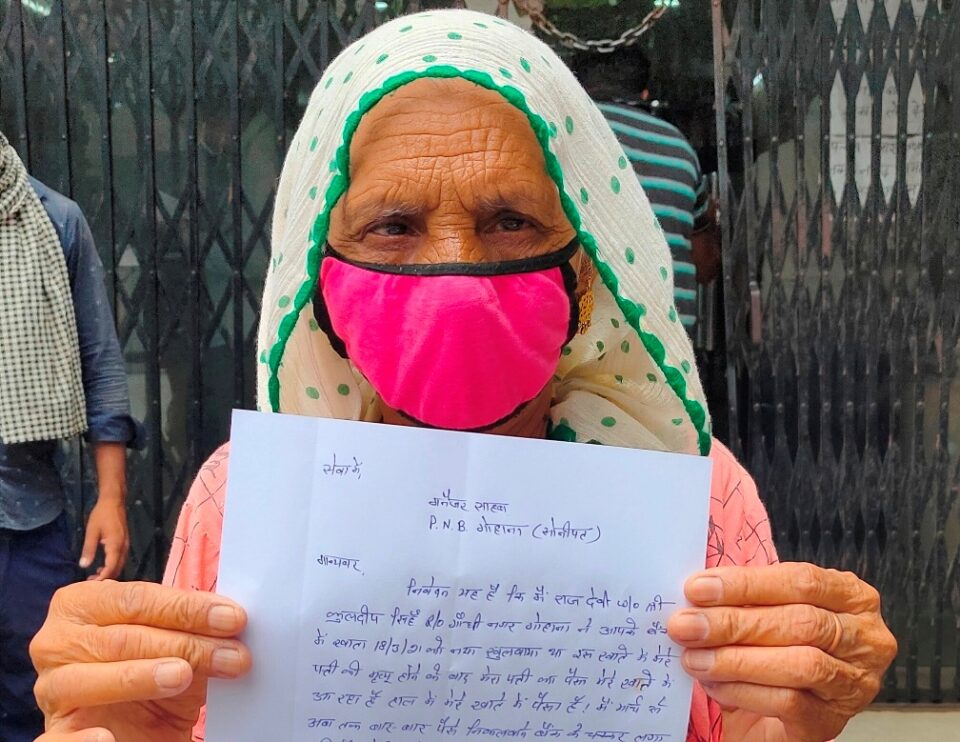 सेवा में,
मनेजर साहब
P.N.B. गोहाना (सोनीपत)
मान्यवर,
निवेदन यह है कि मैं राज देवी w/o श्री
कुलदीप सिहँ R/o गाँधी नगर गोहाना ने आपके बैंक
में खाता 18/3/21 को नया खुलवाया था इस खाते में मेरे
पती की मृत्यु होने के बाद मेरा पती का पैसा मेरे खाते में
आ रहा है हाल में मेरे खाते में पैसा है। मैं मार्च से
अब तक बार-बार पैसे निकलवाने बैंक के चक्कर लगा